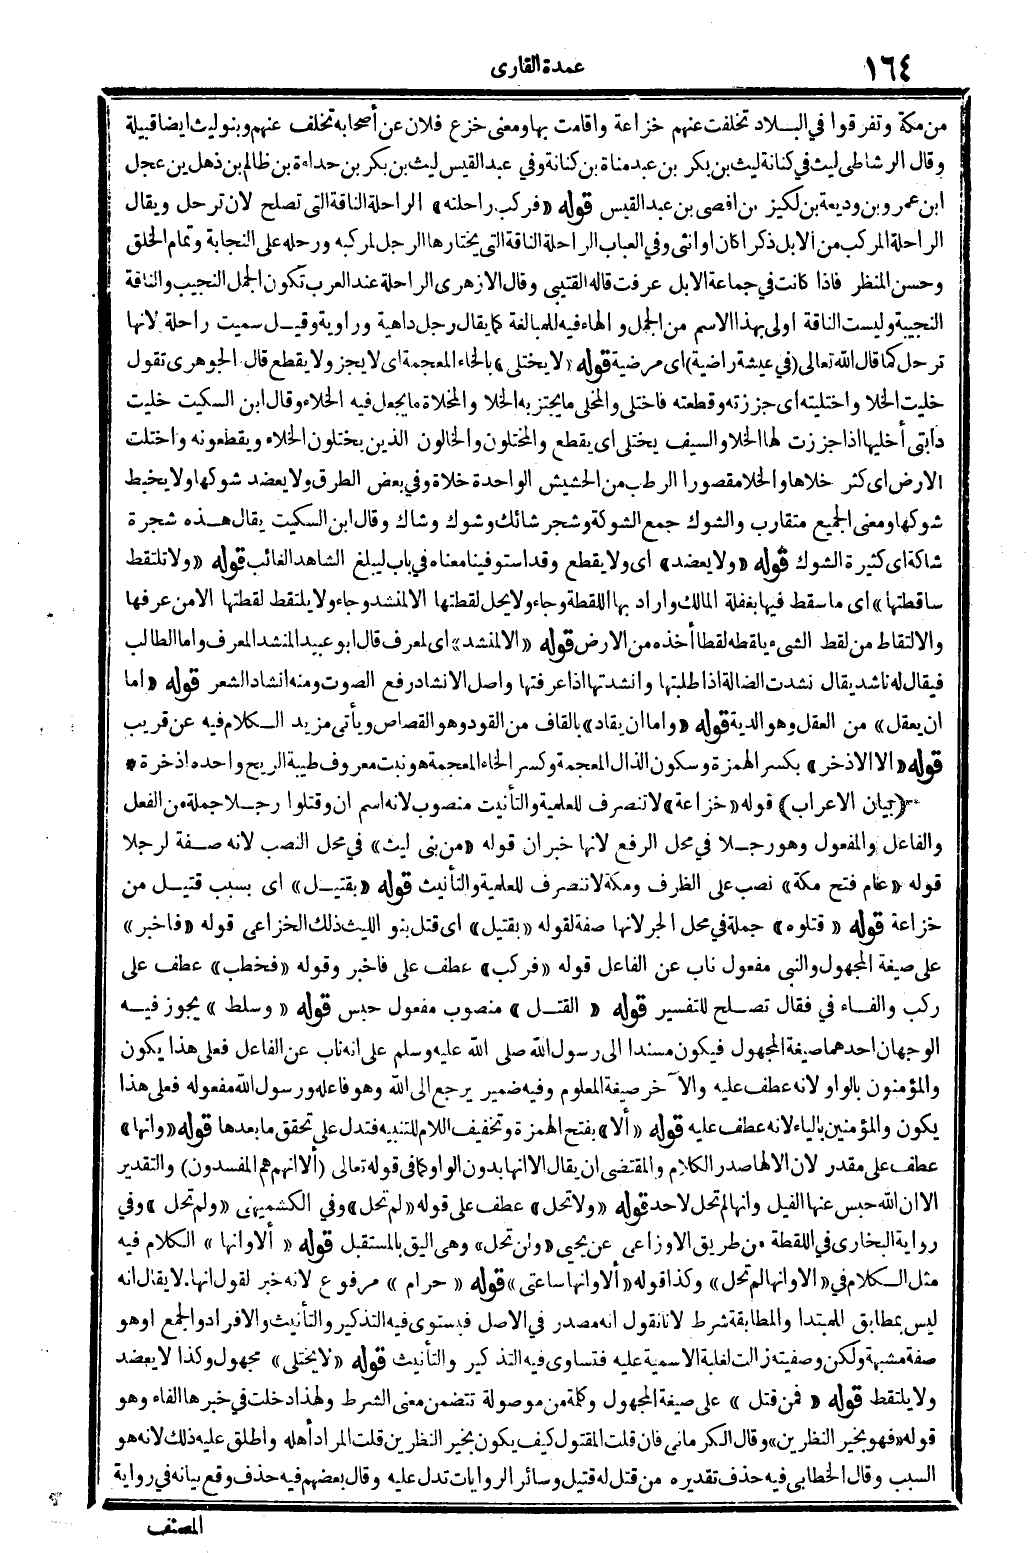 ١٦٤
عمدة القارى
من مكة وتفرقوا في البلاد تخلفت عنهم خزاعة واقامت بها ومعنى خزع فلان عن أصحابه تخلف عنهم وبنو ليث ايضا قبيلة
وقال الرشاطى ليث في كنانة ليث بن بكر بن عبد مناة بن كنانة وفي عبد القيس ليث بن بكر بن حداءة بن ظالم بن ذهل بن عجل
ابن عمرو بن وديعة بن لكيز بن افصى بن عبد القيس قوله «فركب راحلته» الراحلة الناقة التى تصلح لان ترحل ويقال
الراحلة المركب من الابل ذكرا كان او انثى وفي العباب الراحلة الناقة التى يختارها الرجل لمركبه ورحله على النجابة وتمام الخلق
وحسن المنظر فاذا كانت في جماعة الابل عرفت قاله القتيبى وقال الازهرى الراحلة عند العرب تكون الجمل النجيب والناقة
النجيبة وليست الناقة اولى بهذا الاسم من الجمل والهاء فيه للمبالغة كما يقال رجل داهية وراوية وقيل سميت راحلة لانها
ترحل كما قال الله تعالى (في عيشة راضية) اى مرضية قوله «لا يختلى» بالخاء المعجمة اى لا يجز ولا يقطع قال الجوهرى تقول
خليت الخلا واختليته أى جززته وقطعته فاختلى والمخلى ما يجتز به الخلا والمخلاة ما يجعل فيه الخلاء وقال ابن السكيت خليت
دابتى أخليها اذا جززت لها الخلا والسيف يختلى اى يقطع والمختلون والخالون الذين يختلون الخلاء ويقطعونه واختلت
الارض اى كثر خلاها والخلا مقصورا الرطب من الحشيش الواحدة خلاة وفي بعض الطرق ولا يعضد شوكها ولا يخبط
شوكها ومعنى الجميع متقارب والشوك جمع الشوكة وشجر شائك وشوك وشاك وقال ابن السكيت يقال هذه شجرة
شاكة اى كثيرة الشوك قوله «ولا يعضد» اى ولا يقطع وقد استوفينا معناه في باب ليبلغ الشاهد الغائب قوله «ولا تلتقط
ساقطتها» اى ما سقط فيها بغفلة المالك واراد بها اللقطة وجاء ولا يحل لقطتها الا لمنشد وجاء ولا يلتقط لقطتها الا من عرفها
والالتقاط من لقط الشىء يلقطه لقطا أخذه من الارض قوله «الا لمنشد» اى لمعرف قال ابو عبيد المنشد المعرف واما الطالب
فيقال له ناشد يقال نشدت الضالة اذا طلبتها وانشدتها اذا عرفتها واصل الانشاد رفع الصوت ومنه انشاد الشعر قوله «اما
ان يعقل» من العقل وهو الدية قوله «واما ان يقاد» بالقاف من القود وهو القصاص ويأتى مزيد الكلام فيه عن قريب
قوله «الا الاذخر» بكسر الهمزة وسكون الذال المعجمة وكسر الخاء المعجمة هو نبت معروف طيبة الريح واحده اذخرة *
(بيان الاعراب) قوله «خزاعة» لا تنصرف للعلمية والتأنيث منصوب لانه اسم ان وقتلوا رجلا جملة من الفعل
والفاعل والمفعول وهو رجلا في محل الرفع لانها خبر ان قوله «من بنى ليث» في محل النصب لانه صفة لرجلا
قوله «عام فتح مكة» نصب على الظرف ومكة لا تنصرف للعلمية والتأنيث قوله «بقتيل» اى بسبب قتيل من
خزاعة قوله «قتلوه» جملة في محل الجر لانها صفة لقوله «بقتيل» اى قتل بنو الليث ذلك الخزاعى قوله «فاخبر»
على صيغة المجهول والنبى مفعول ناب عن الفاعل قوله «فركب» عطف على فاخبر وقوله «فخطب» عطف على
ركب والفاء في فقال تصلح للتفسير قوله «القتل» منصوب مفعول حبس قوله «وسلط» يجوز فيه
الوجهان احدهما صيغة المجهول فيكون مسندا الى رسول الله صلى الله عليه وسلم على انه ناب عن الفاعل فعلى هذا يكون
والمؤمنون بالواو لانه عطف عليه والآخر صيغة المعلوم وفيه ضمير يرجع الى الله وهو فاعله ورسول الله مفعوله فعلى هذا
يكون والمؤمنين بالياء لانه عطف عليه قوله «ألا» بفتح الهمزة وتخفيف اللام للتنبيه فتدل على تحقق ما بعدها قوله «وانها»
عطف على مقدر لان الالها صدر الكلام والمقتضى ان يقال الا انها بدون الواو كما في قوله تعالى (ألا انهم هم المفسدون) والتقدير
الا ان الله حبس عنها الفيل وانها لم تحل لاحد قوله «ولا تحل» عطف على قوله «لم تحل» وفي الكشميهنى «ولم تحل» وفي
رواية البخارى في اللقطة من طريق الاوزاعى عن يحيى «ولن تحل» وهى اليق بالمستقبل قوله «ألا وانها» الكلام فيه
مثل الكلام في «الا وانها لم تحل» وكذا قوله «ألا وانها ساعتى» قوله «حرام» مرفوع لانه خبر لقوله انها. لا يقال انه
ليس بمطابق للمبتدا والمطابقة شرط لانا نقول انه مصدر في الاصل فيستوى فيه التذكير والتأنيث والافراد والجمع او هو
صفة مشبهة ولكن وصفيته زالت لغلبة الاسمية عليه فتساوى فيه التذكير والتأنيث قوله «لا يختلى» مجهول وكذا لا يعضد
ولا يلتقط قوله «فمن قتل» على صيغة المجهول وكلمة من موصولة تتضمن معنى الشرط ولهذا دخلت في خبرها الفاء وهو
قوله «فهو بخير النظرين» وقال الكرمانى فان قلت المقتول كيف يكون بخير النظرين قلت المراد أهله واطلق عليه ذلك لانه هو
السبب وقال الخطابى فيه حذف تقديره من قتل له قتيل وسائر الروايات تدل عليه وقال بعضهم فيه حذف وقع بيانه في رواية
المصنف